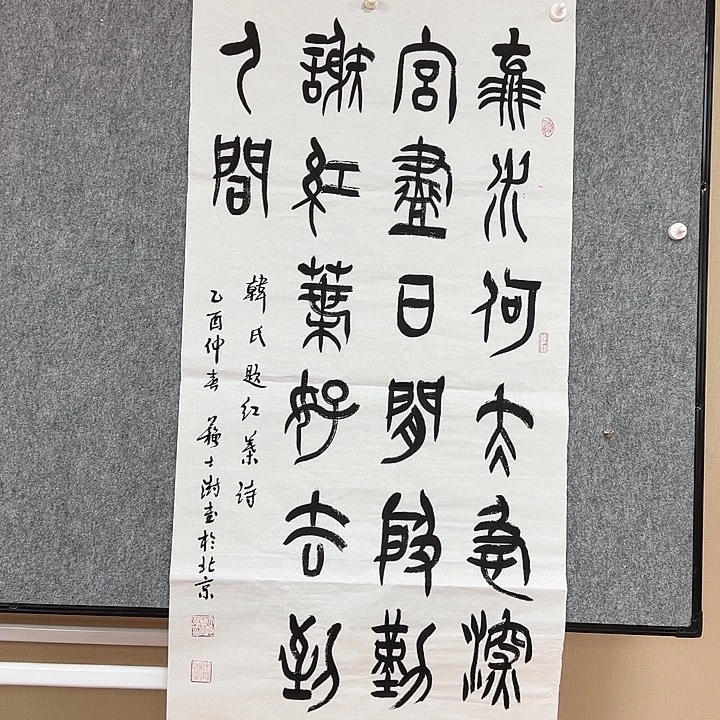 流水何太急深
宮盡日閒殷勤
謝紅葉好去到
人間
韓氏题红葉诗
乙酉仲春 蘇士澍書於北京